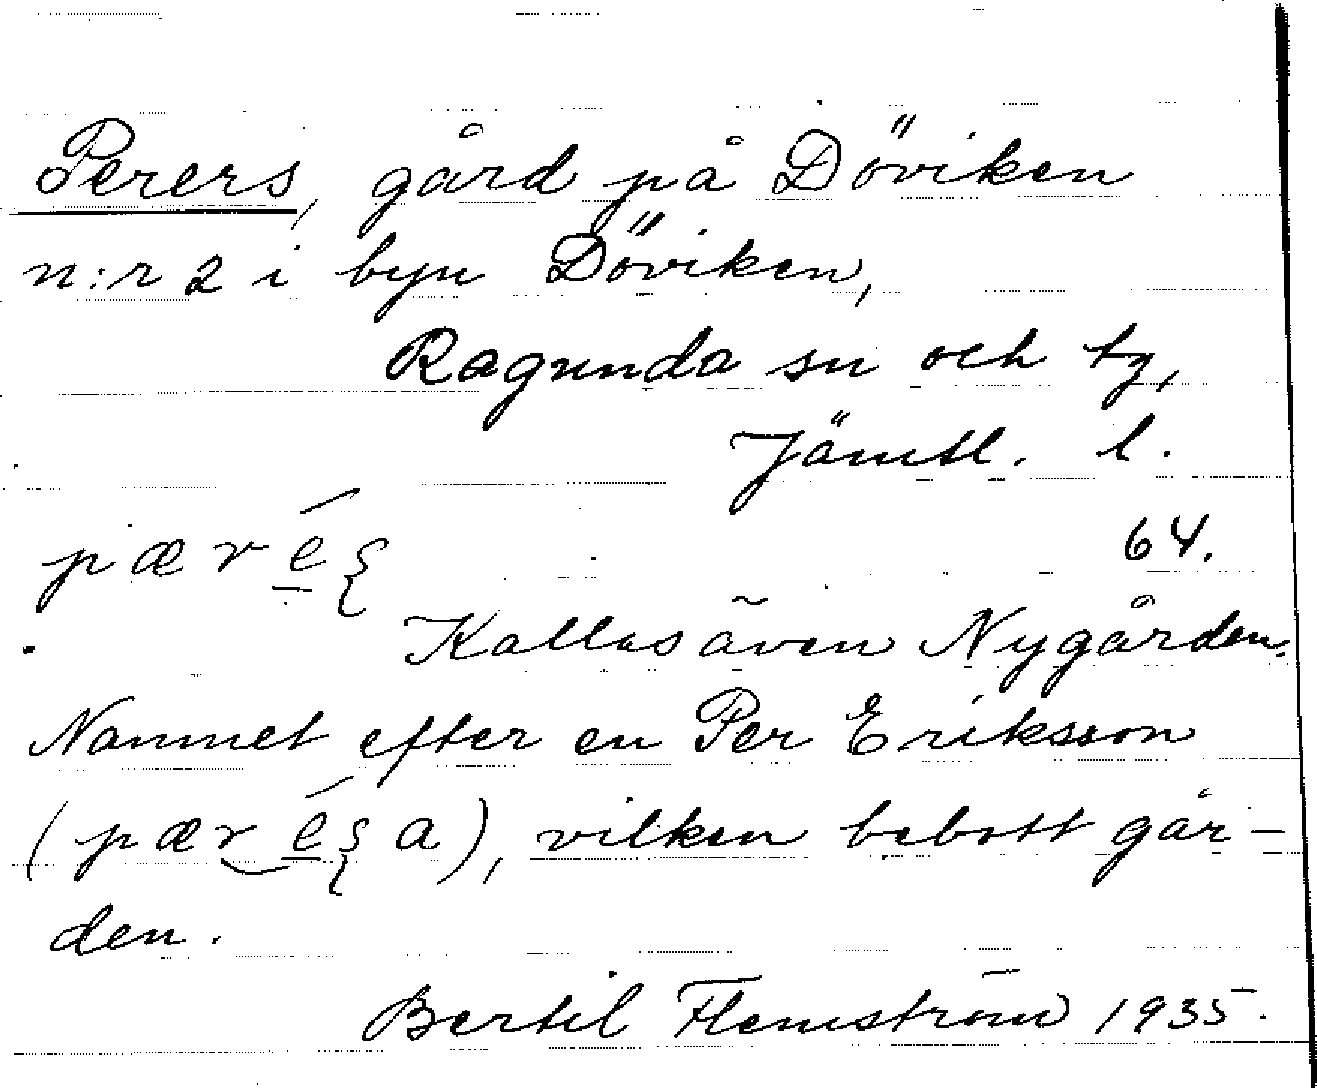 Perers, gård på Döviken
n:r 2 i byn Döviken,
Ragunda sn och tg,
Jämtl. l.
pæré̱ξ 64.
Kallas även Nygården.
Namnet efter en Per Eriksson
(pær‿é̱ξa), vilken bebott går-
den.
Bertil Flemström 1935.